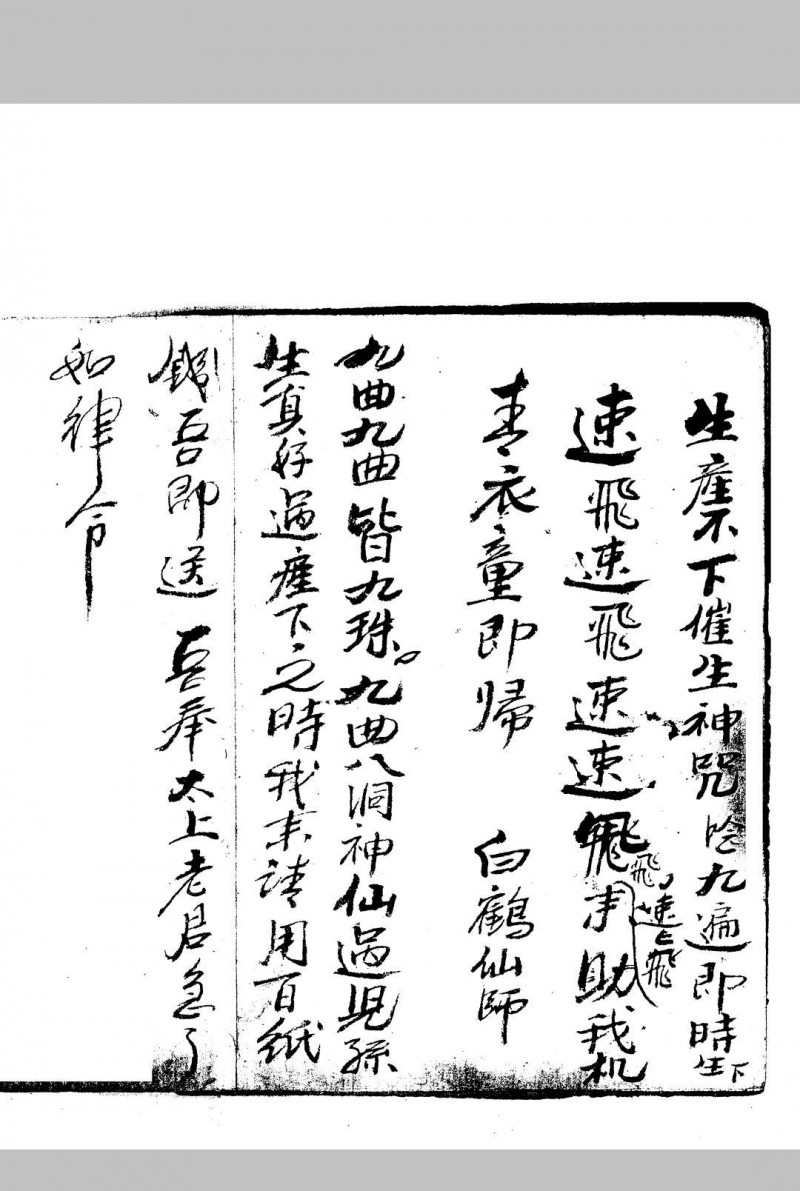 生產不下催生神咒唸九遍即時生下
速飛速飛速速飛来助我机
飛速〻飛
青衣童即归 白鶴仙師
九曲九曲皆九珠。九曲八洞神仙過児孫
生真好過產下之時我来請用百紙
錢吾即送 吾奉太上老君急〻
如律令